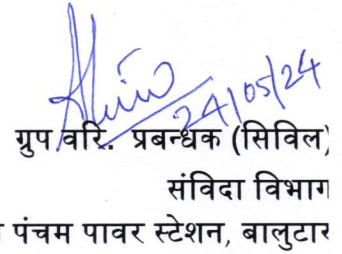 24/05/24
ग्रुप वरि. प्रबन्धक (सिविल)
संविदा विभाग
पंचम पावर स्टेशन, बालुटार